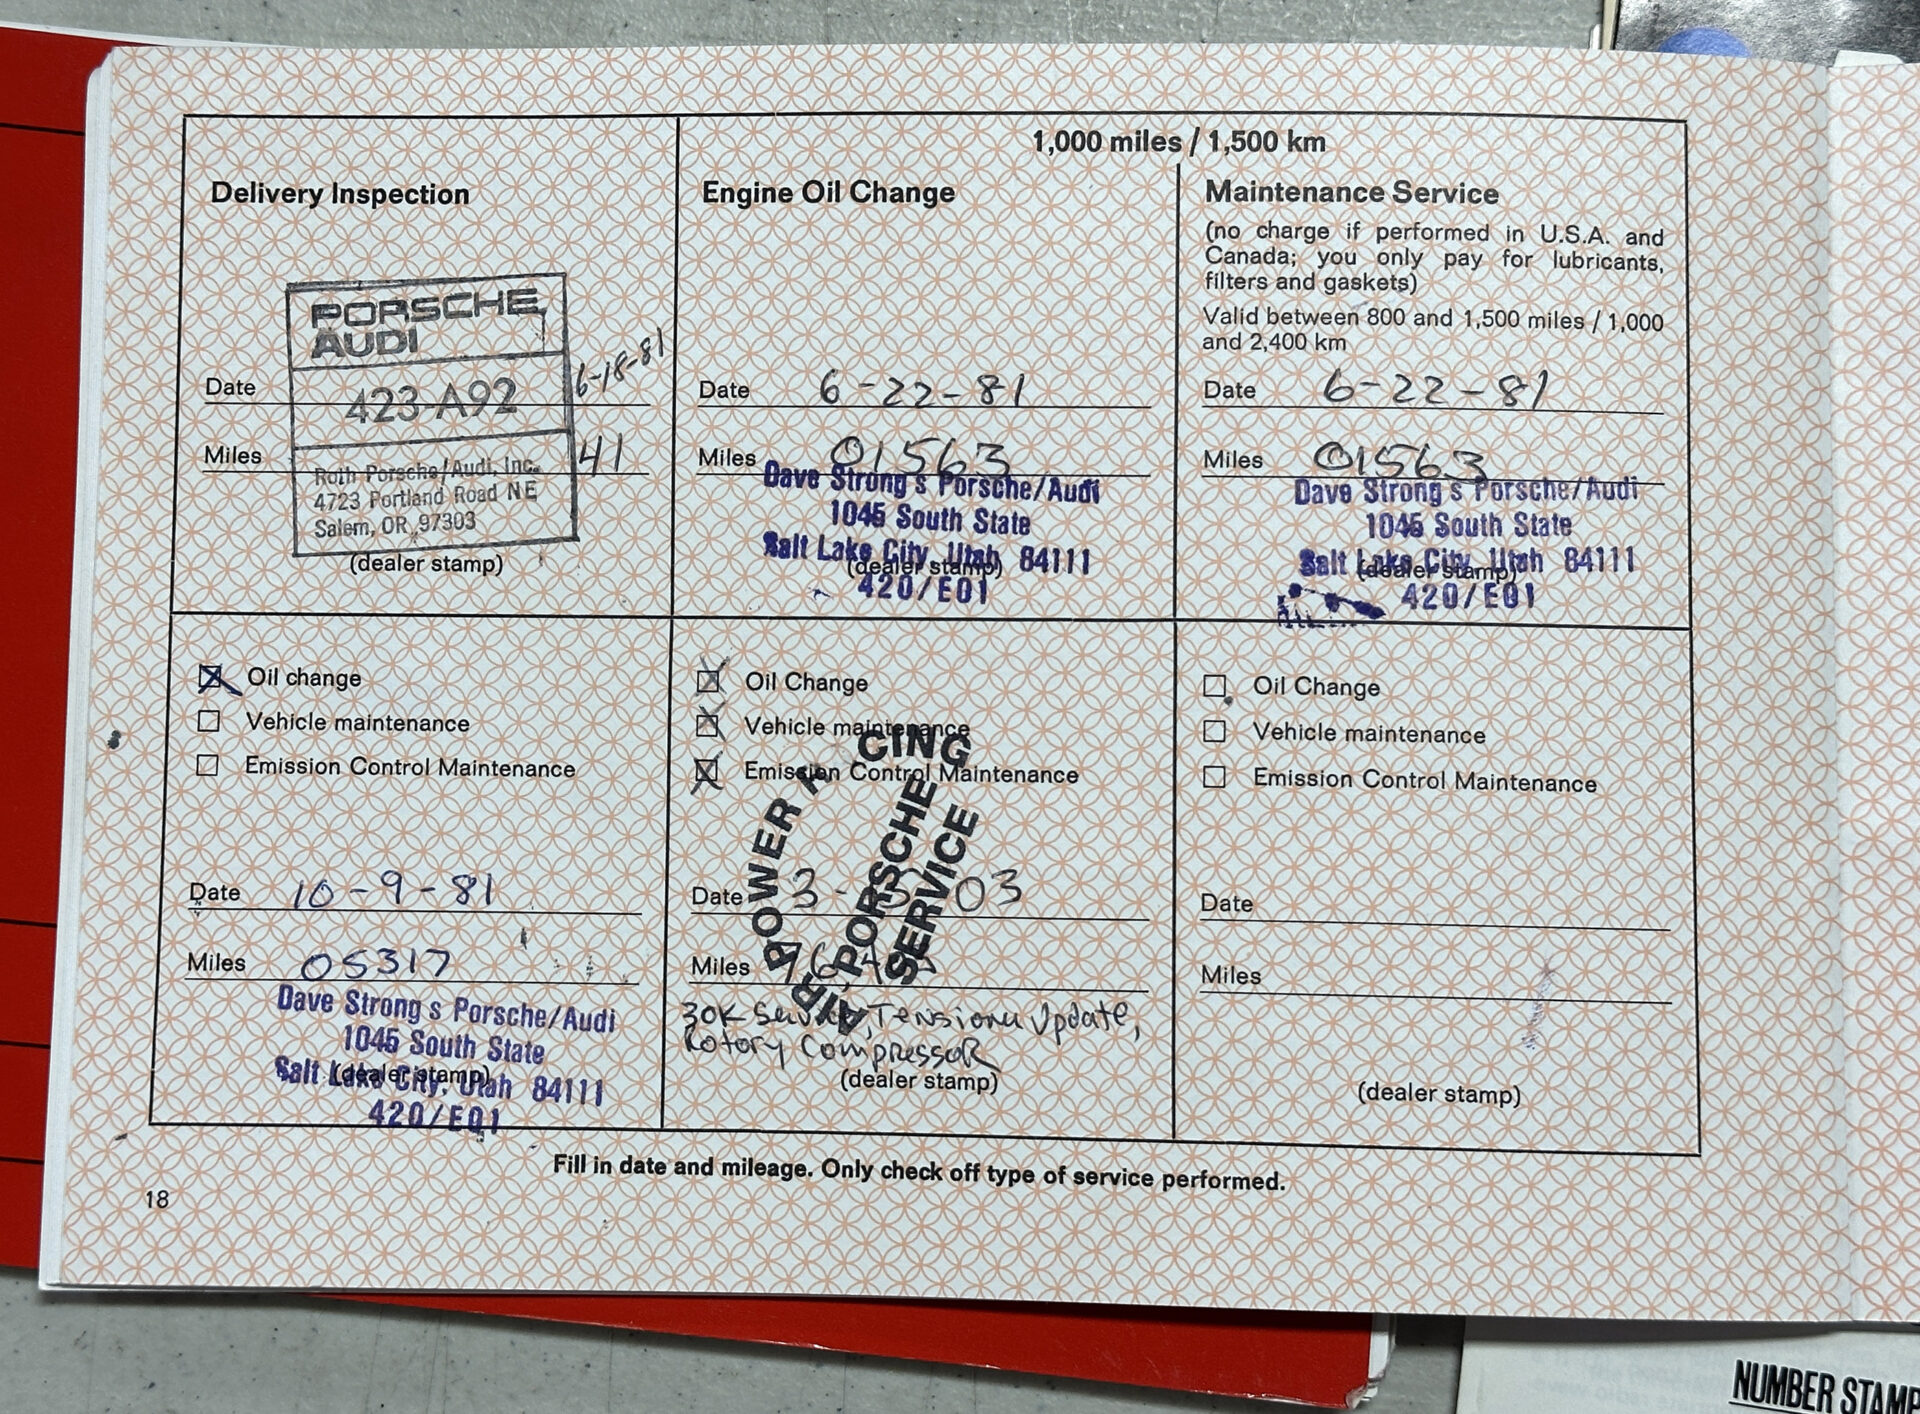 1,000 miles / 1,500 km
Delivery Inspection
PORSCHE
AUDI
423-A92
Roth Porsche/Audi, Inc.
4723 Portland Road NE
Salem, OR 97303
Date 6-18-81
Miles 41
(dealer stamp)
Engine Oil Change
Date 6-22-81
Miles 01563
Dave Strong s Porsche/Audi
1045 South State
Salt Lake City, Utah 84111
(dealer stamp)
420/E01
Maintenance Service
(no charge if performed in U.S.A. and
Canada; you only pay for lubricants,
filters and gaskets)
Valid between 800 and 1,500 miles / 1,000
and 2,400 km
Date 6-22-81
Miles 01563
Dave Strong s Porsche/Audi
1045 South State
Salt Lake City, Utah 84111
(dealer stamp)
420/E01
Oil change
Vehicle maintenance
Emission Control Maintenance
Date 10-9-81
Miles 05317
Dave Strong s Porsche/Audi
1045 South State
Salt Lake City, Utah 84111
(dealer stamp)
420/E01
Oil Change
Vehicle maintenance
Emission Control Maintenance
AIR POWER
PORSCHE
SERVICE
Date
Miles
30K Service, Tensioner Update,
Rotory Compressor
(dealer stamp)
Oil Change
Vehicle maintenance
Emission Control Maintenance
Date
Miles
(dealer stamp)
Fill in date and mileage. Only check off type of service performed.
18
NUMBER STAMP